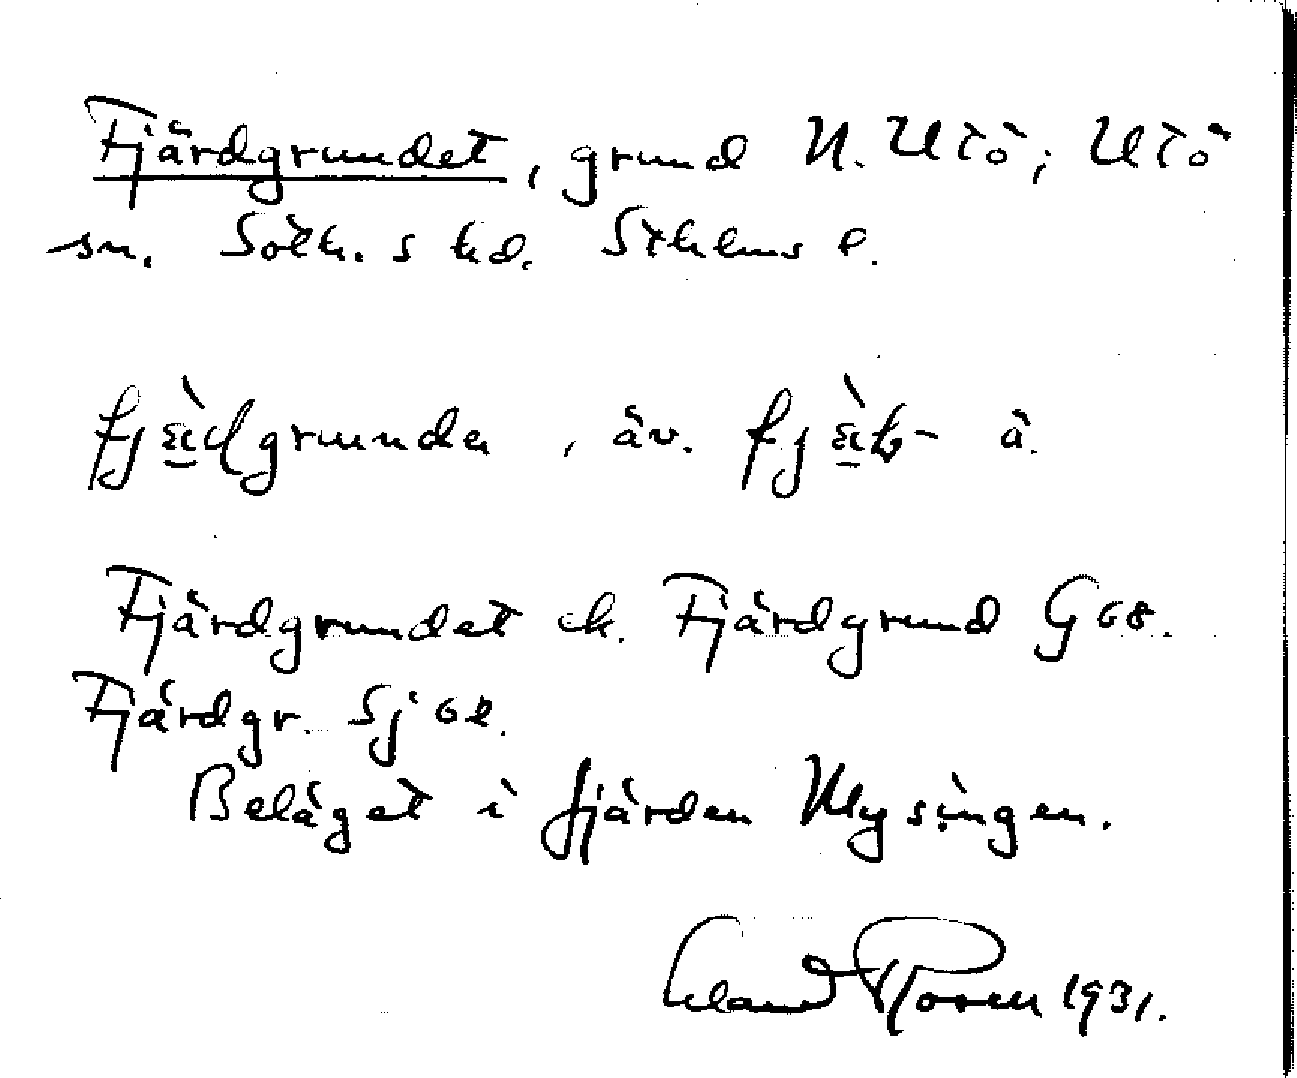 Fjärdgrundet, grund N. Utö; Utö
sn. Soth. s hd. Sthlms l.
fjädgrunda, äv. fjäb- ä.
Fjärdgrundet ek. Fjärdgrund G 68.
Fjärdgr. Sj 62.
Beläget i fjärden Mysingen.
1931.